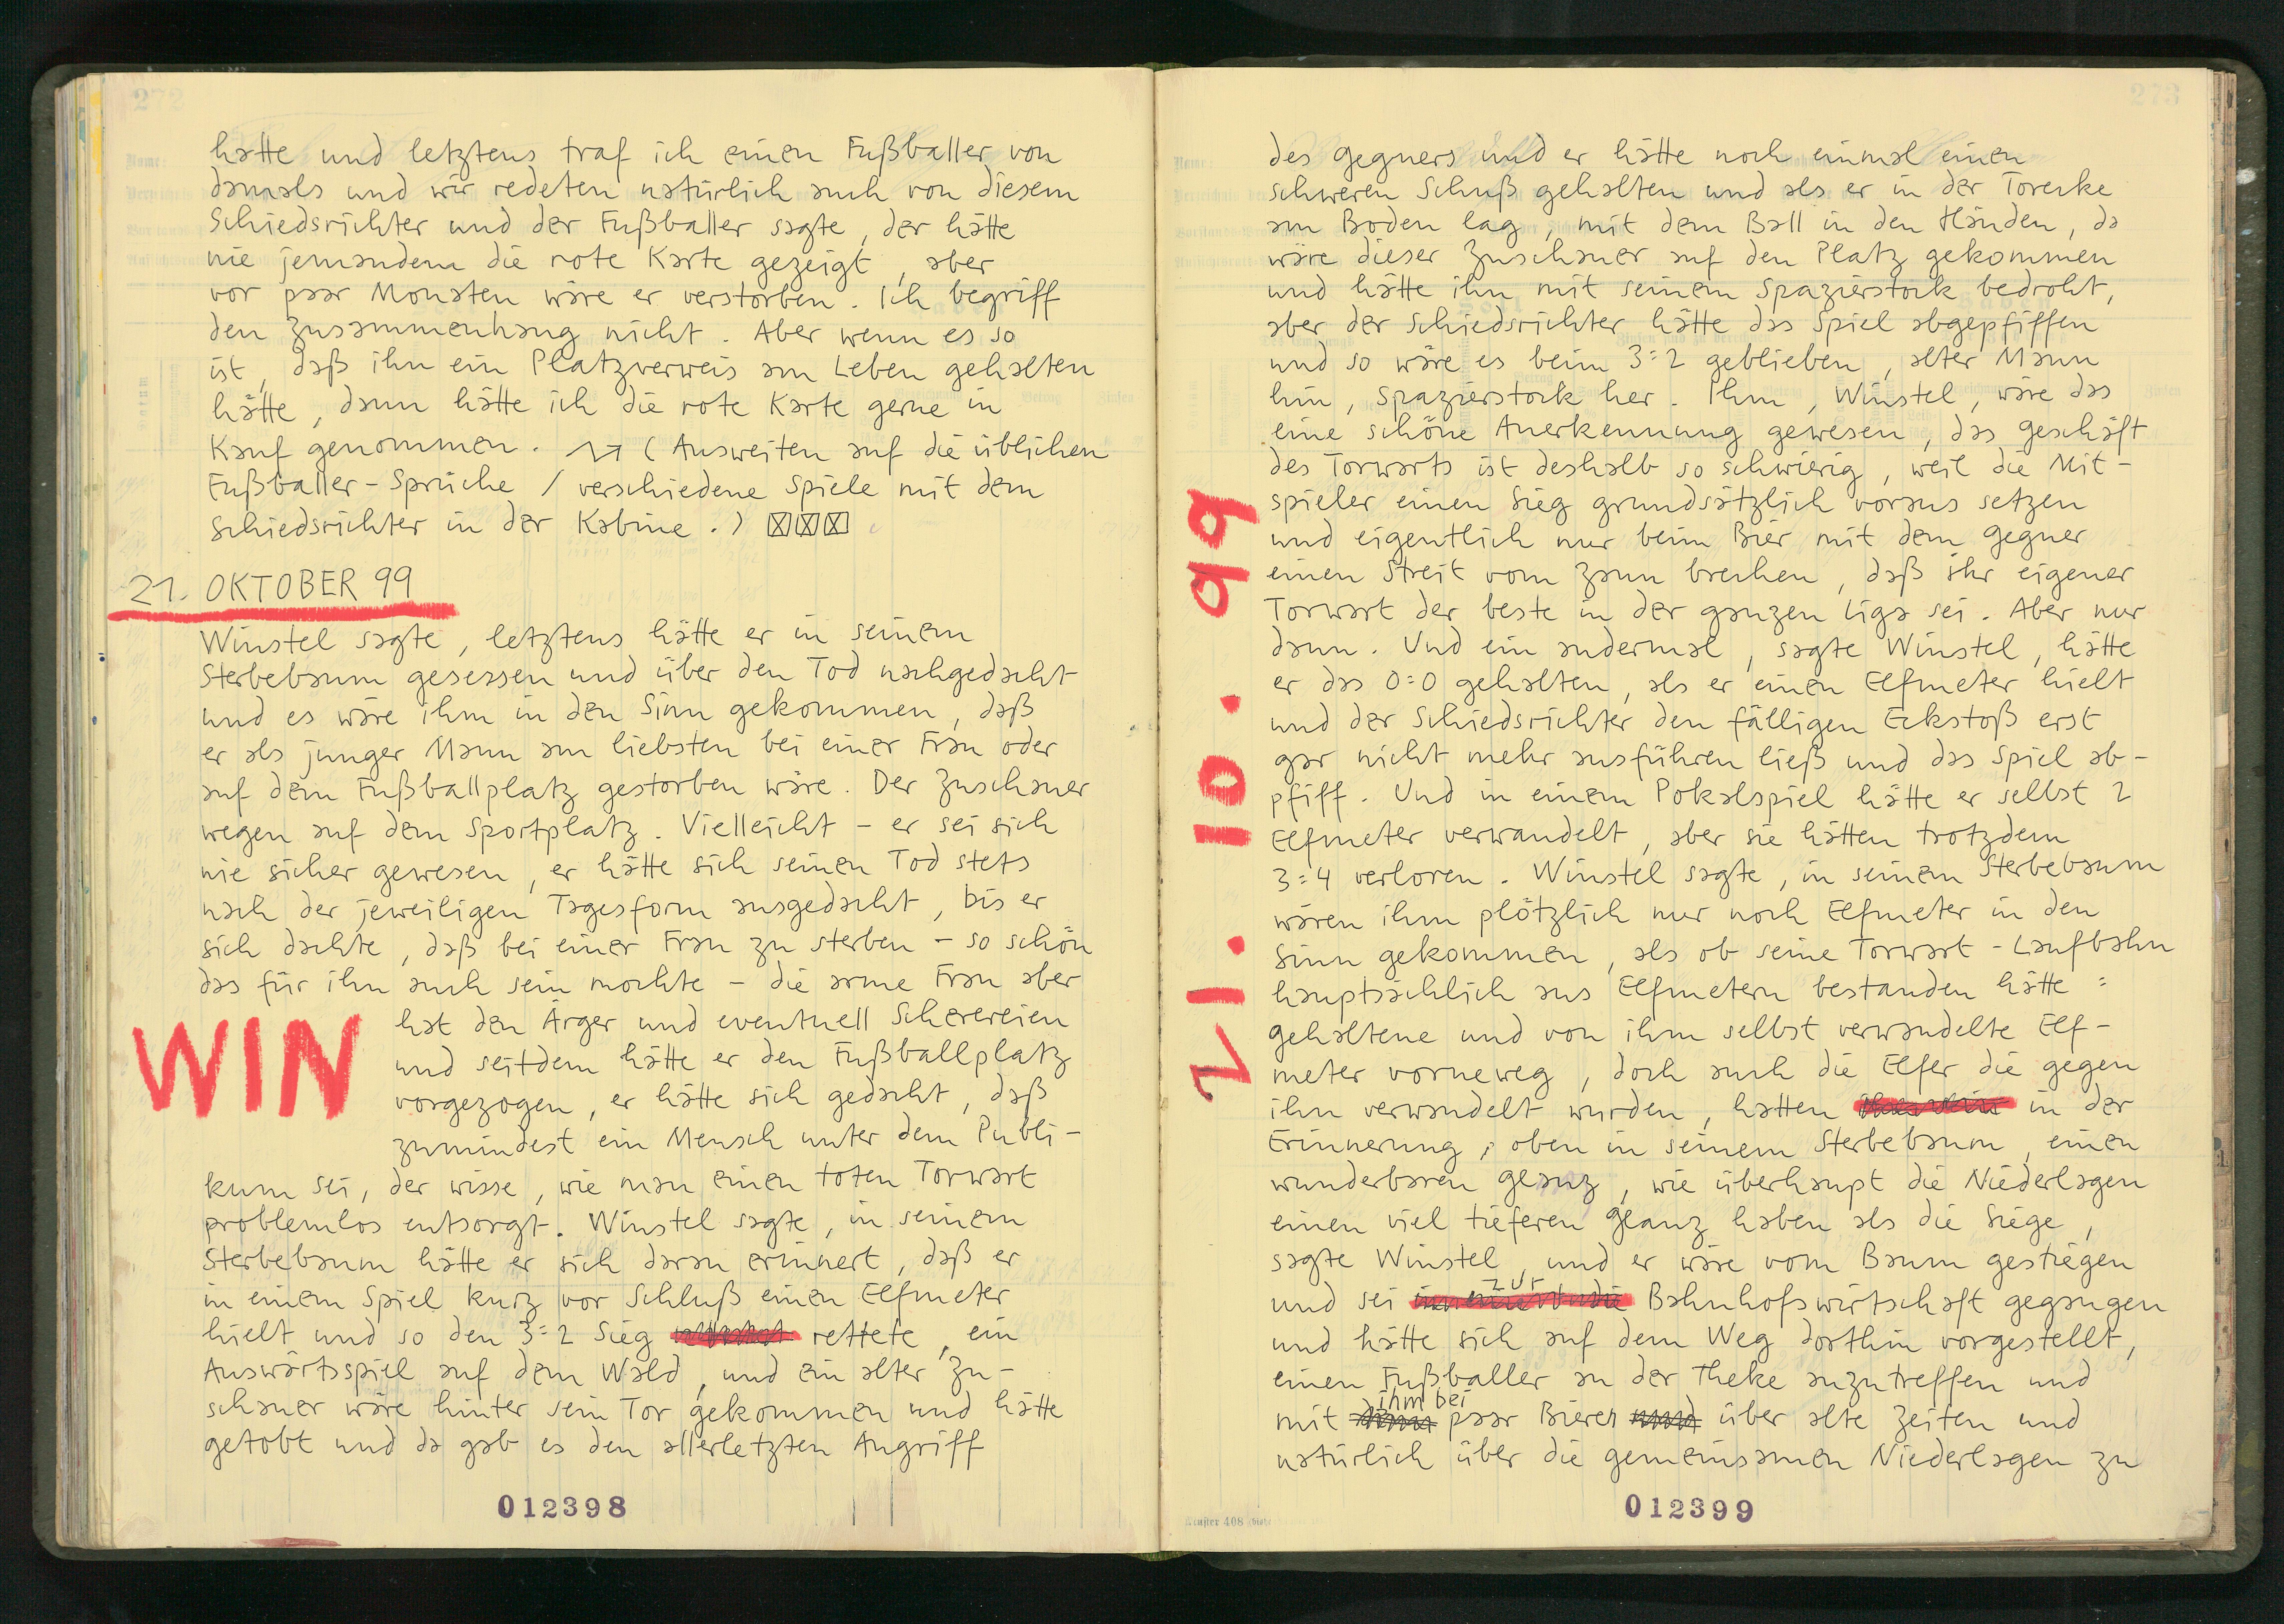 272
hatte und letztens traf ich einen Fußballer von
damals und wir redeten natürlich auch von diesem
Schiedsrichter und der Fußballer sagte, der hätte
nie jemandem die rote Karte gezeigt, aber
vor paar Monaten wäre er verstorben. Ich begriff
den Zusammenhang nicht. Aber wenn es so
ist, daß ihn ein Platzverweis am Leben gehalten
hätte, dann hätte ich die rote Karte gerne in
Kauf genommen. (Ausweiten auf die üblichen
Fußballer-Sprüche / verschiedene Spiele mit dem
Schiedsrichter in der Kabine.) ☒☒☒
21. OKTOBER 99
Winstel sagte, letztens hätte er in seinem
Sterbebaum gesessen und über den Tod nachgedacht
und es wäre ihm in den Sinn gekommen, daß
er als junger Mann am liebsten bei einer Frau oder
auf dem Fußballplatz gestorben wäre. Der Zuschauer
wegen auf dem Sportplatz. Vielleicht – er sei sich
nie sicher gewesen, er hätte sich seinen Tod stets
nach der jeweiligen Tagesform ausgedacht, bis er
sich dachte, daß bei einer Frau zu sterben – so schön
das für ihn auch sein mochte – die arme Frau aber
WIN
hat den Ärger und eventuell Scherereien
und seitdem hätte er den Fußballplatz
vorgezogen, er hätte sich gedacht, daß
zumindest ein Mensch unter dem Publi-
kum sei, der wisse, wie man einen toten Torwart
problemlos entsorgt. Winstel sagte, in seinem
Sterbebaum hätte er sich daran erinnert, daß er
in einem Spiel kurz vor Schluß einen Elfmeter
hielt und so den 3:2 Sieg rettete, ein
Auswärtsspiel auf dem Wald, und ein alter Zu-
schauer wäre hinter sein Tor gekommen und hätte
getobt und da gab es den allerletzten Angriff
012398
273
des Gegners und er hätte noch einmal einen
schweren Schuß gehalten und als er in der Torecke
am Boden lag, mit dem Ball in den Händen, da
wäre dieser Zuschauer auf den Platz gekommen
und hätte ihn mit seinem Spazierstock bedroht,
aber der Schiedsrichter hätte das Spiel abgepfiffen
und so wäre es beim 3:2 geblieben, alter Mann
hin, Spazierstock her. Ihm, Winstel, wäre das
eine schöne Anerkennung gewesen, das Geschäft
des Torwarts ist deshalb so schwierig, weil die Mit-
spieler einen Sieg grundsätzlich voraus setzen
und eigentlich nur beim Bier mit dem Gegner
einen Streit vom Zaun brechen, daß ihr eigener
Torwart der beste in der ganzen Liga sei. Aber nur
dann. Und ein andermal, sagte Winstel, hätte
er das 0:0 gehalten, als er einen Elfmeter hielt
und der Schiedsrichter den fälligen Eckstoß erst
gar nicht mehr ausführen ließ und das Spiel ab-
pfiff. Und in einem Pokalspiel hätte er selbst 2
Elfmeter verwandelt, aber sie hätten trotzdem
3:4 verloren. Winstel sagte, in seinem Sterbebaum
wären ihm plötzlich nur noch Elfmeter in den
Sinn gekommen, als ob seine Torwart-Laufbahn
hauptsächlich aus Elfmetern bestanden hätte:
gehaltene und von ihm selbst verwandelte Elf-
meter vorneweg, doch auch die Elfer die gegen
ihn verwandelt wurden, hatten in der
Erinnerung, oben in seinem Sterbebaum, einen
wunderbaren Glanz, wie überhaupt die Niederlagen
einen viel tieferen Glanz haben als die Siege,
sagte Winstel, und er wäre vom Baum gestiegen
und sei zur Bahnhofswirtschaft gegangen
und hätte sich auf dem Weg dorthin vorgestellt,
einen Fußballer an der Theke anzutreffen und
mit ihm bei paar Bieren über alte Zeiten und
natürlich über die gemeinsamen Niederlagen zu
21. 10. 99
012399
Muster 408